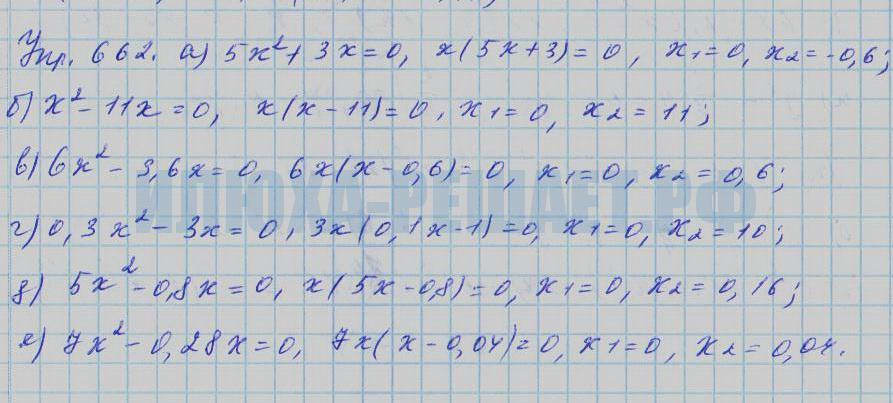 Упр. 662. а) 5x²+3x=0, x(5x+3)=0, x₁=0, x₂=-0,6;
б) x²-11x=0, x(x-11)=0, x₁=0, x₂=11;
в) 6x²-3,6x=0, 6x(x-0,6)=0, x₁=0, x₂=0,6;
ИЛЮХА-РЕШАЕТ.РФ
г) 0,3x²-3x=0, 3x(0,1x-1)=0, x₁=0, x₂=10;
д) 5x²-0,8x=0, x(5x-0,8)=0, x₁=0, x₂=0,16;
е) 7x²-0,28x=0, 7x(x-0,04)=0, x₁=0, x₂=0,04.